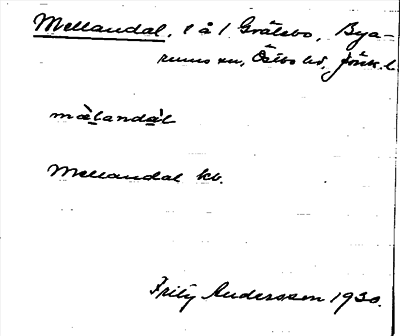 Mellandal, l å l Gråtebo, Bya-
rums sn, Östbo hd, Jönk. l.
mälandàl
Mellandal kb.
Fritz Andersson 1930.